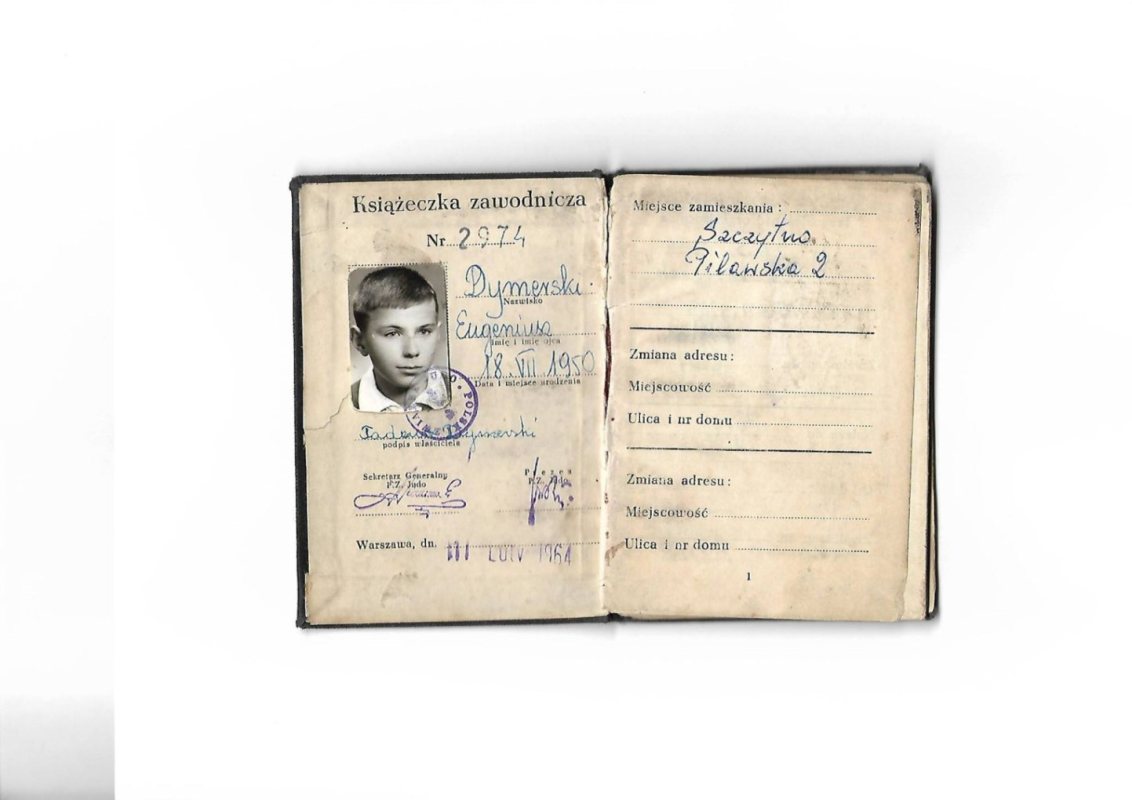 Książeczka zawodnicza
Nr 2974
Dymerski
Nazwisko
Eugeniusz
Imię i imię ojca
18. VII 1950
Data i miejsce urodzenia
Dymerski
podpis właściciela
Sekretarz Generalny
P.Z. Judo
Prezes
P.Z. Judo
Warszawa, dn. 1964
Miejsce zamieszkania :
Szczytno
Piławska 2
Zmiana adresu :
Miejscowość
Ulica i nr domu
Zmiana adresu :
Miejscowość
Ulica i nr domu
1